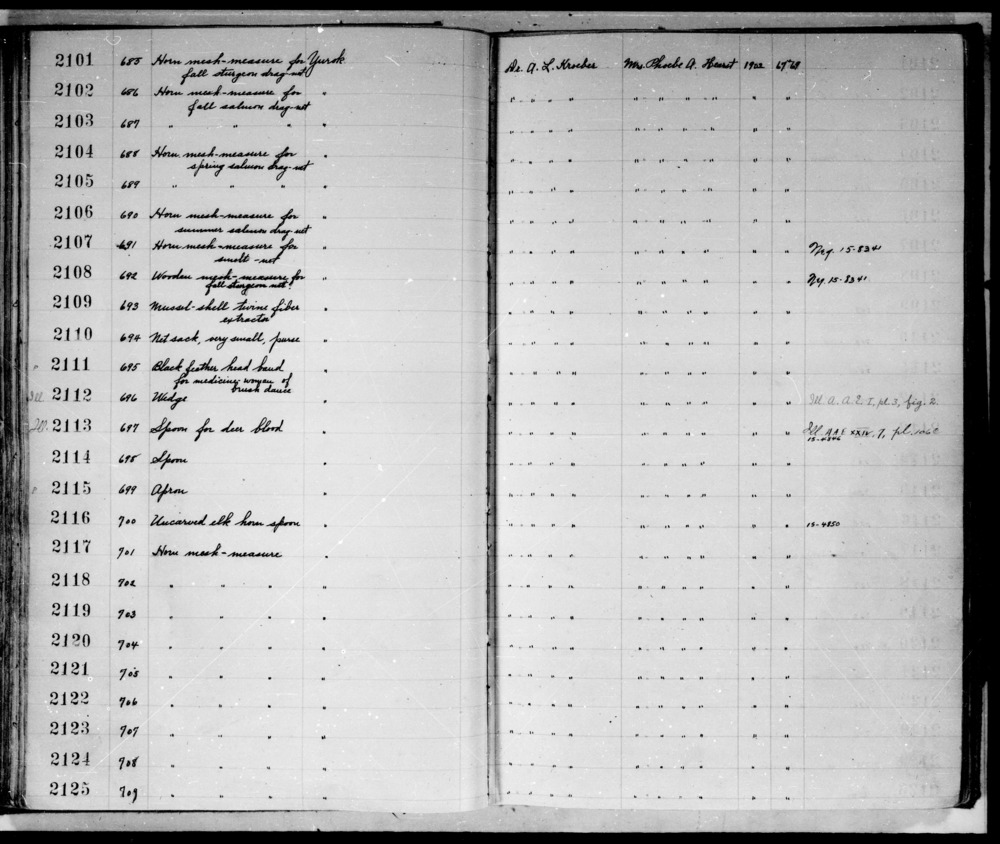 2101 685 Horn mesh-measure for Yurok Dr. A. L. Kroeber Mrs. Phoebe A. Hearst 1902
fall sturgeon drag-net
2102 686 Horn mesh-measure for " " " " " " " " " " " "
fall salmon drag-net
2103 687 " " " " " " " " " " " " " " "
2104 688 Horn mesh-measure for " " " " " " " " " " " "
spring salmon drag-net
2105 689 " " " " " " " " " " " " " " "
2106 690 Horn mesh-measure for " " " " " " " " " " "
summer salmon drag-net
2107 691 Horn mesh-measure for " " " " " " " " " " " Neg. 15-8341
smelt-net
2108 692 Wooden mesh-measure for " " " " " " " " " " " Neg. 15-8341
fall sturgeon net
2109 693 Mussel-shell twine fiber " " " " " " " " " " "
extractor
2110 694 Net sack, very small, purse " " " " " " " " " " "
2111 695 Black feather head band " " " " " " " " " " "
for medicine woman of
brush dance
Ill. 2112 696 Wedge " " " " " " " " " " " Ill A. A. E I, pl. 3, fig. 2
Ill. 2113 697 Spoon for deer blood " " " " " " " " " " " Ill. A A E XXIV, 7, pl.
2114 698 Spoon " " " " " " " " " " "
2115 699 Apron " " " " " " " " " " "
2116 700 Uncarved elk horn spoon " " " " " " " " " " " 15-4850
2117 701 Horn mesh-measure " " " " " " " " " " "
2118 702 " " " " " " " " " " " " " "
2119 703 " " " " " " " " " " " " " "
2120 704 " " " " " " " " " " " " " "
2121 705 " " " " " " " " " " " " " "
2122 706 " " " " " " " " " " " " " "
2123 707 " " " " " " " " " " " " " "
2124 708 " " " " " " " " " " " " " "
2125 709 " " " " " " " " " " " " " "